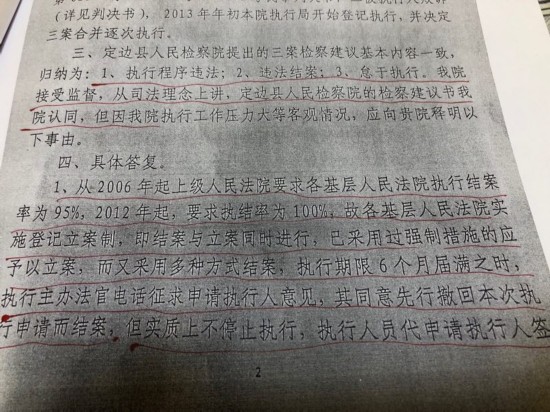 （详见判决书），2013年年初本院执行局开始登记执行，并决定
三案合并逐次执行。
三、定边县人民检察院提出的三案检察建议基本内容一致，
归纳为：1、执行程序违法；2、违法结案；3、怠于执行。我院
接受监督，从司法理念上讲，定边县人民检察院的检察建议书我
院认同，但因我院执行工作压力大等客观情况，应向贵院释明以
下事由。
四、具体答复。
1、从2006年起上级人民法院要求各基层人民法院执行结案
率为95%，2012年起，要求执结率为100%，故各基层人民法院实
施登记立案制，即结案与立案同时进行，已采用过强制措施的应
予以立案，而又采用多种方式结案，执行期限6个月届满之时，
执行主办法官电话征求申请执行人意见，其同意先行撤回本次执
行申请而结案，但实质上不停止执行，执行人员代申请执行人签
2